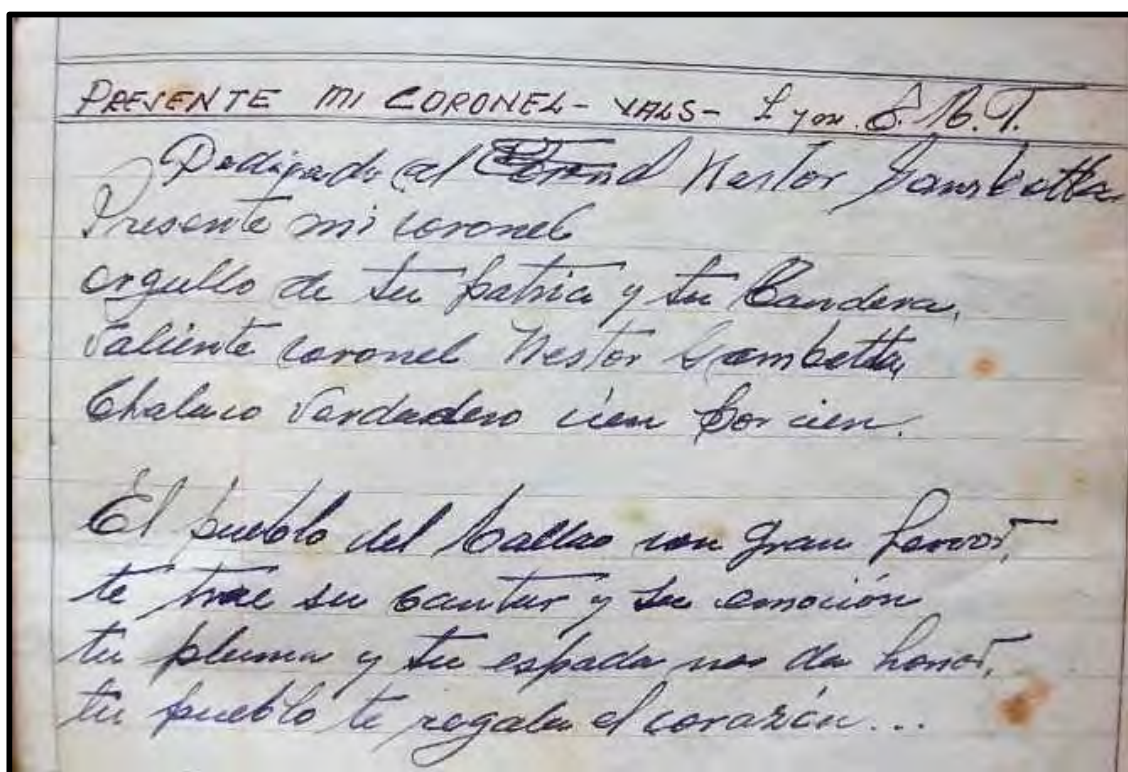 PRESENTE MI CORONEL - VALS - L y m. E. M. T.
Dedicado al Coronel Nestor Gambetta
Presente mi coronel
orgullo de tu patria y tu Bandera,
Valiente coronel Nestor Gambetta,
Chalaco Verdadero cien por cien.
El pueblo del Callao con gran fervor,
te trae su cantar y su emoción
tu pluma y tu espada nos da honor,
tu pueblo te regala el corazón...